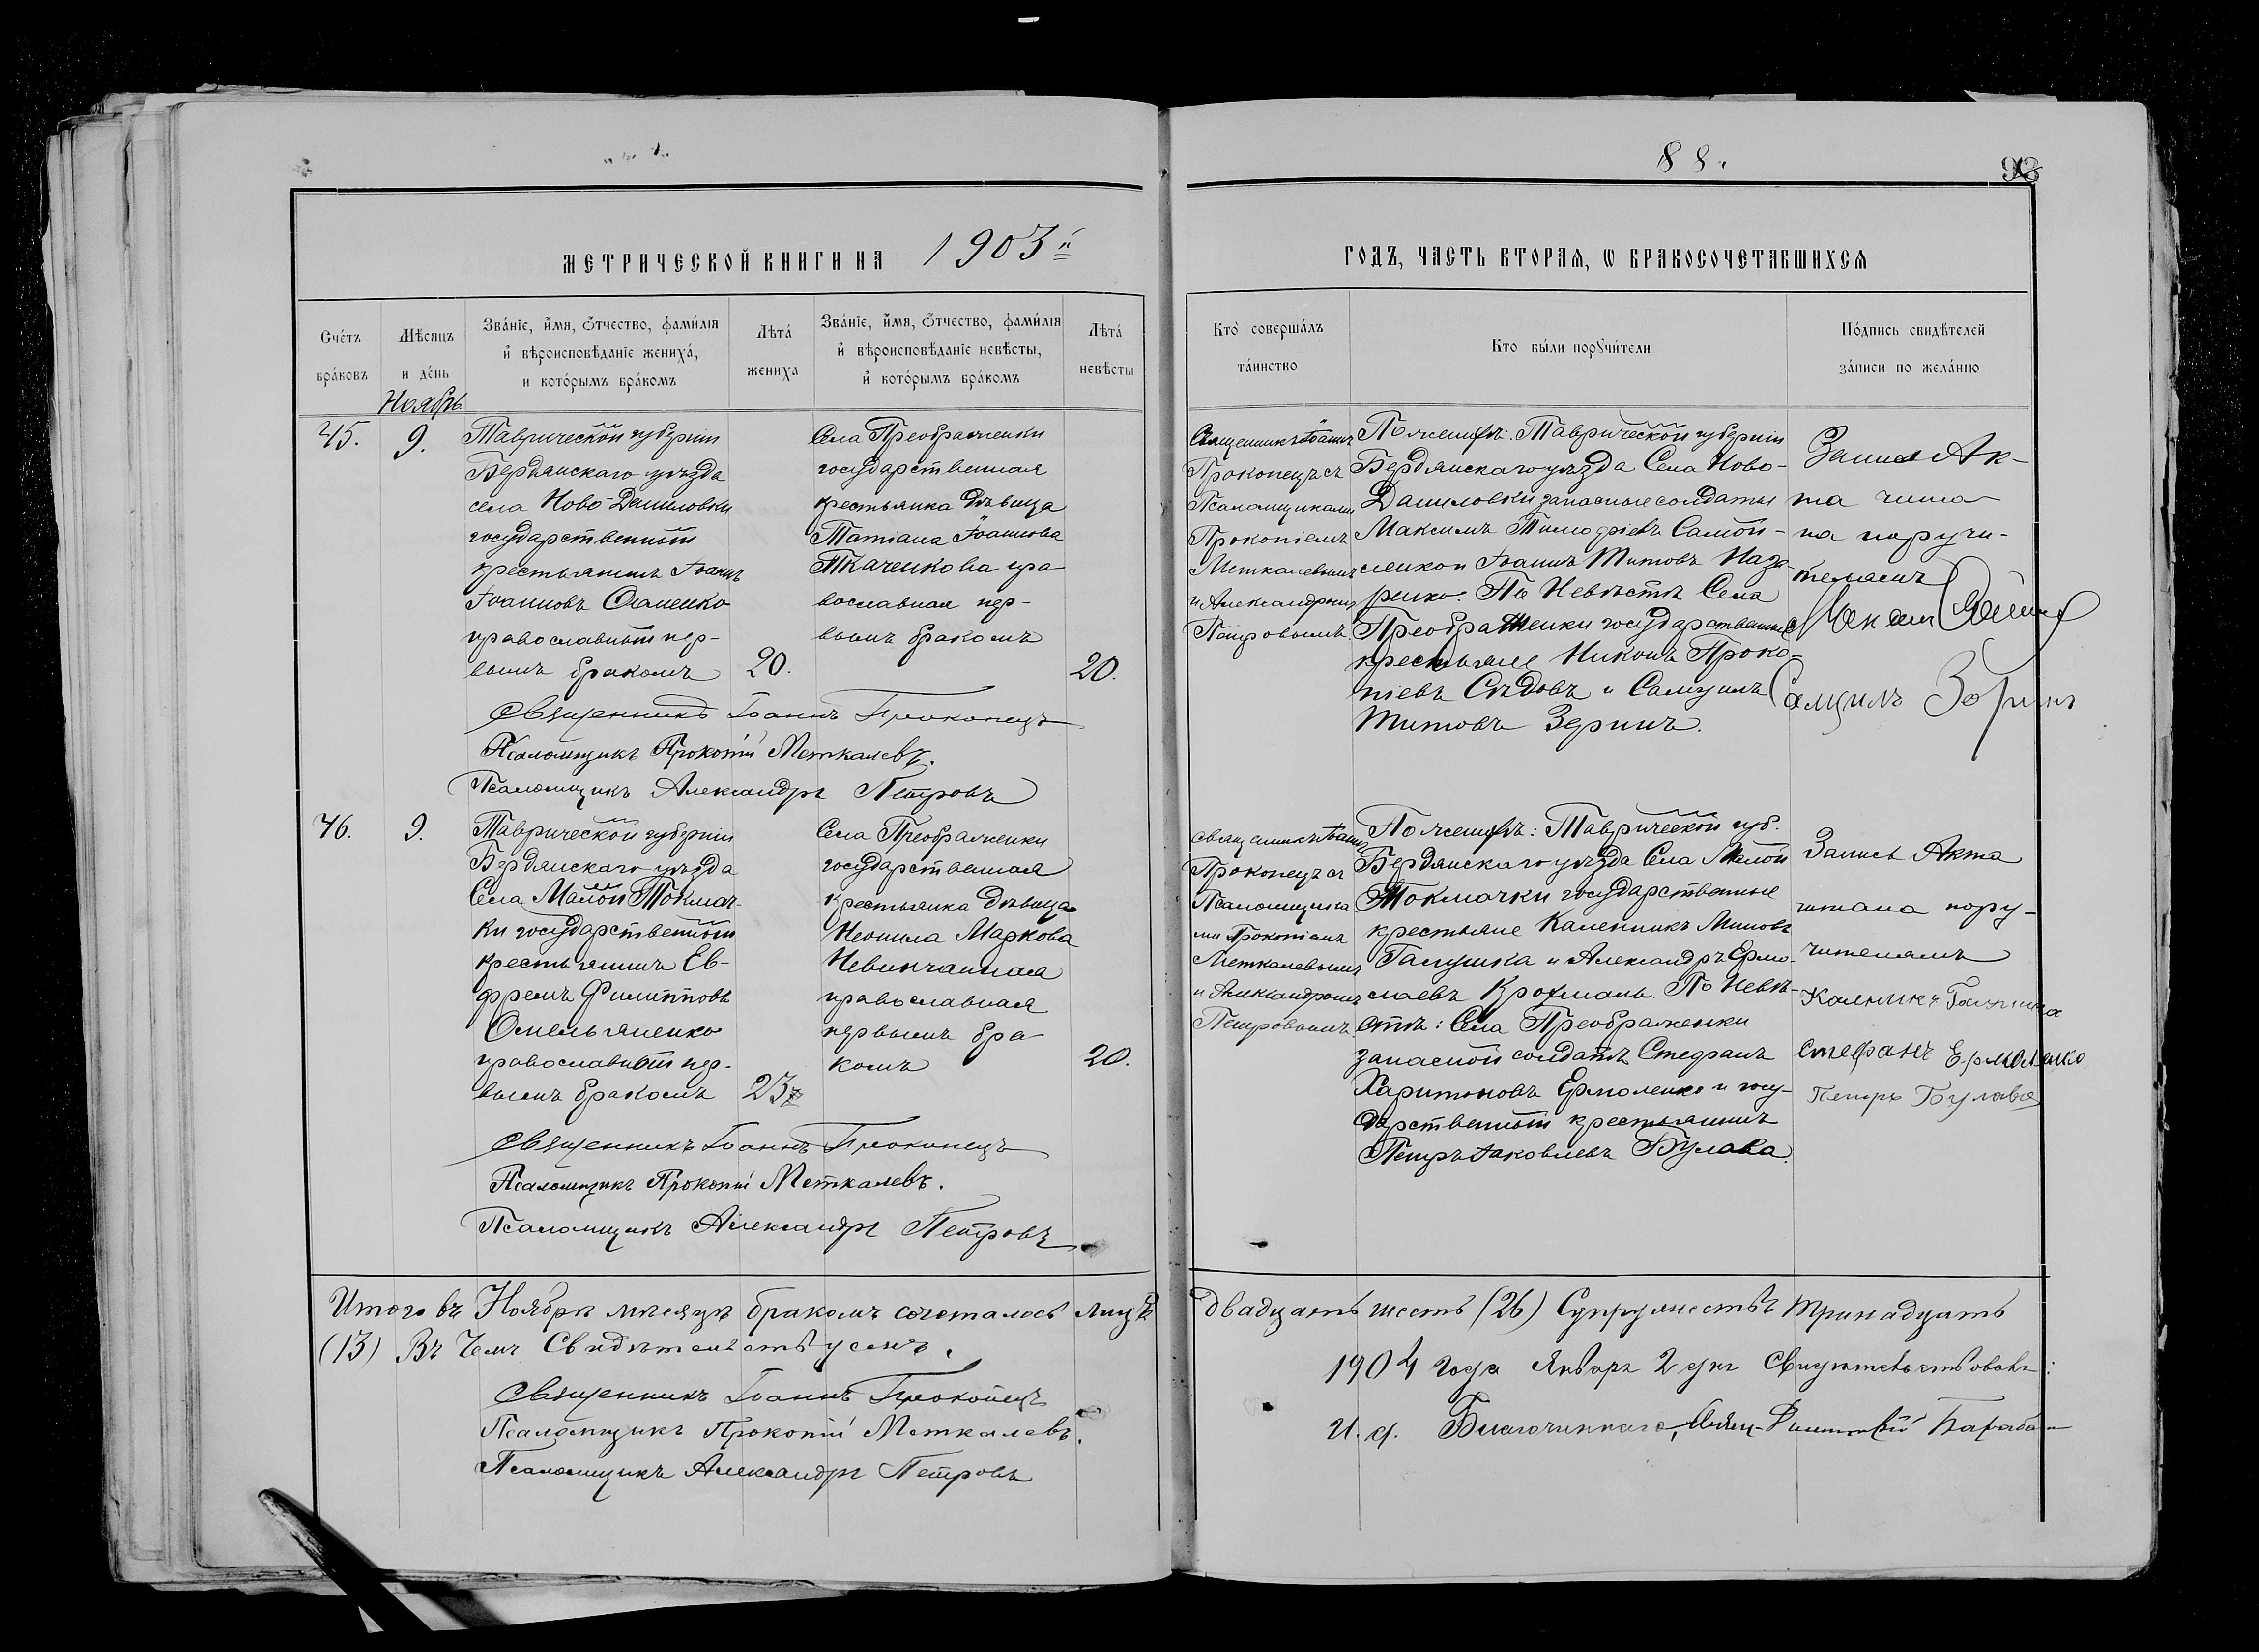 88.
93
МЕТРИЧЕСКОЙ КНИГИ НА 1903й
ГОДЪ, ЧАСТЬ ВТОРАЯ, Ѡ БРАКОСОЧЕТАВШИХСЯ
Счетъ браковъ
Мѣсяцъ и день
Званіе, имя, отчество, фамилія
и вѣроисповѣданіе жениха,
и которымъ бракомъ
Лѣта жениха
Званіе, имя, отчество, фамилія
и вѣроисповѣданіе невѣсты,
и которымъ бракомъ
Лѣта невѣсты
Кто совершалъ таинство
Кто были поручители
Подпись свидѣтелей
записи по желанію
Ноябрь
45.
9.
Таврической губерніи
Бердянскаго уѣзда
села Ново-Даниловки
государственный
крестьянинъ Іоаннъ
Іоанновъ
православный пер-
вымъ бракомъ
20.
Села Преображенки
государственная
крестьянка дѣвица
Татіана Іоаннова
Ткаченкова пра-
вославная пер-
вымъ бракомъ
20.
Священникъ Іоаннъ
Прокопецъ съ
Псаломщиками
Прокопіемъ
Меткалевымъ
и Александромъ
Петровымъ
По женихѣ: Таврической губерніи
Бердянскаго уѣзда Села Ново-
Даниловки запасные солдаты
Максимъ Тимофѣевъ Самой-
ленко и Іоаннъ Титовъ Наза-
ренко. По Невѣстѣ Села
Преображенки государственные
крестьяне Никонъ Проко-
піевъ Сѣдовъ и Самуилъ
Титовъ Зеринъ.
Запись Ак-
та чита-
на поручи-
телямъ
Самуилъ Зоринъ
Священникъ Іоаннъ Прокопецъ
Псаломщикъ Прокопій Меткалевъ.
Псаломщикъ Александръ Петровъ
46.
9.
Таврической губерніи
Бердянскаго уѣзда
Села Малой Токмач-
ки государственный
крестьянинъ Ев-
фремъ Филипповъ
Омельяненко
православный пер-
вымъ бракомъ
23
Села Преображенки
государственная
крестьянка дѣвица
Неонила Маркова
Невинчанная
православная
первымъ бра-
комъ
20.
Священникъ Іоаннъ
Прокопецъ съ
Псаломщика-
ми Прокопіемъ
Меткалевымъ
и Александромъ
Петровымъ
По женихѣ: Таврической губ.
Бердянскаго уѣзда Села Малой
Токмачки государственные
крестьяне Каленникъ Миновъ
Галушка и Александръ Ермо-
лаевъ Крохмаль. По Невѣ-
стѣ: Села Преображенки
запасной солдатъ Стефанъ
Харитоновъ Ермоленко и госу-
дарственный крестьянинъ
Петръ Іаковлевъ Булава.
Запись Акта
читана пору-
чителямъ
Калникъ Галушка
Стефанъ Ермоленко
Петръ Булава
Священникъ Іоаннъ Прокопецъ
Псаломщикъ Прокопій Меткалевъ.
Псаломщикъ Александръ Петровъ
Итого въ Ноябрѣ мѣсяцѣ бракомъ сочеталось лицъ двадцать шесть (26) Супружествъ тринадцать
(13) Въ чемъ Свидѣтельствуемъ.
Священникъ Іоаннъ Прокопецъ
Псаломщикъ Прокопій Меткалевъ.
Псаломщикъ Александръ Петровъ
1904 года Января 2 дня Свидѣтельствовалъ:
И. д. Благочиннаго, Барабаш